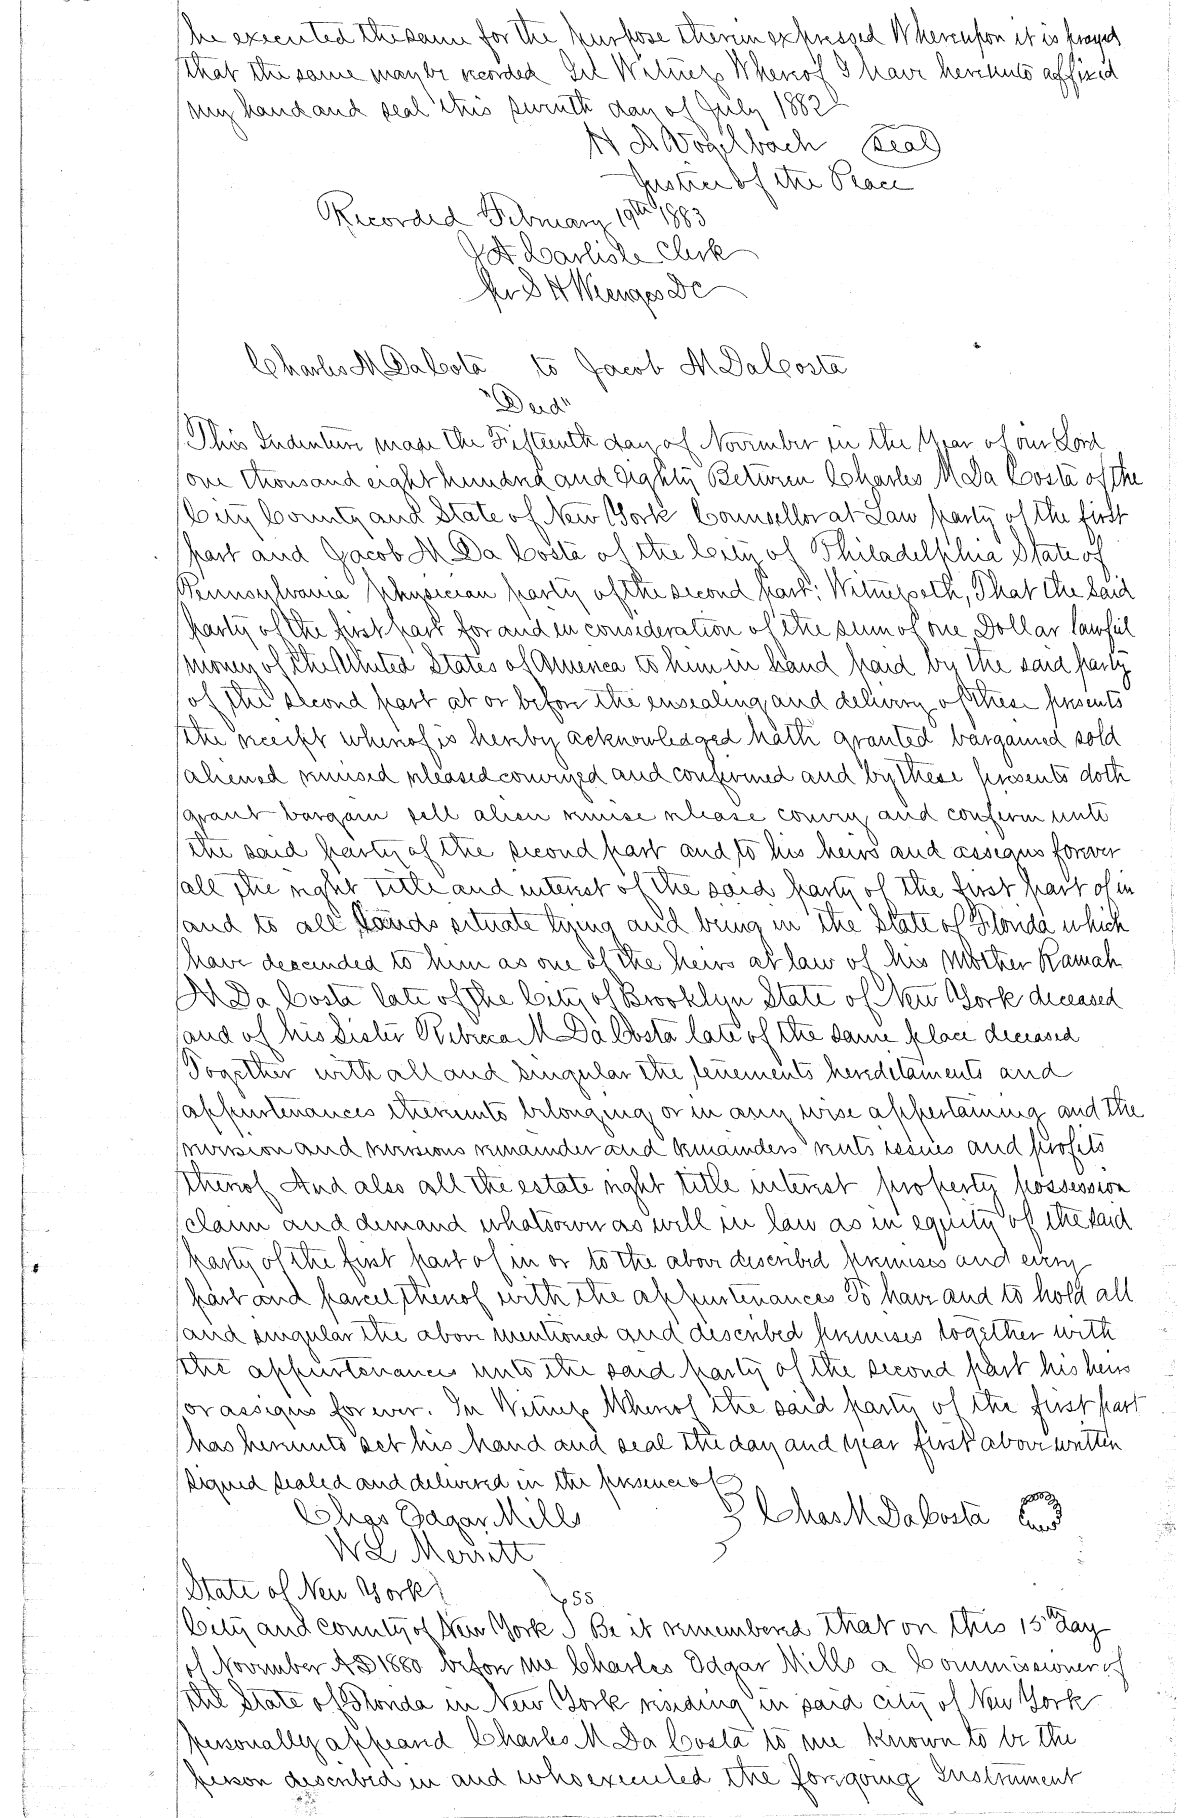 he executed the same for the purpose therein expressed Whereupon it is prayed
that the same may be recorded In Witness Whereof I have hereunto affixed
my hand and seal this seventh day of July 1882
H A Vogelbach Seal
Justice of the Peace
Recorded February 19th 1883
J A Carlisle Clerk
per S H Wienges DC
Charles M DaCosta to Jacob M DaCosta
"Deed"
This Indenture made the Fifteenth day of November in the Year of our Lord
one thousand eight hundred and eighty Between Charles M Da Costa of the
City County and State of New York Counsellor at Law party of the first
part and Jacob M Da Costa of the City of Philadelphia State of
Pennsylvania physician party of the second part; Witnesseth, That the said
party of the first part for and in consideration of the sum of one Dollar lawful
money of the United States of America to him in hand paid by the said party
of the second part at or before the ensealing and delivery of these presents
the receipt whereof is hereby acknowledged hath granted bargained sold
aliened remised released conveyed and confirmed and by these presents doth
grant bargain sell alien remise release convey and confirm unto
the said party of the second part and to his heirs and assigns forever
all the right title and interest of the said party of the first part of in
and to all Lands situate lying and being in the State of Florida which
have descended to him as one of the heirs at law of his Mother Ramah
M Da Costa late of the City of Brooklyn State of New York deceased
and of his Sister Rebecca M Da Costa late of the same place deceased
Together with all and singular the tenements hereditaments and
appurtenances thereunto belonging or in any wise appertaining and the
reversion and reversions remainder and remainders rents issues and profits
thereof And also all the estate right title interest property possession
claim and demand whatsoever as well in law as in equity of the said
party of the first part of in or to the above described premises and every
part and parcel thereof with the appurtenances To have and to hold all
and singular the above mentioned and described premises together with
the appurtenances unto the said party of the second part his heirs
or assigns forever. In Witness Whereof the said party of the first part
has hereunto set his hand and seal the day and year first above written
Signed sealed and delivered in the presence of
Chas Edgar Mills Chas M Da Costa
W L Merritt
State of New York
ss
City and county of New York Be it remembered that on this 15th day
of November AD 1880 before me Charles Edgar Mills a Commissioner of
the State of Florida in New York residing in said city of New York
personally appeared Charles M Da Costa to me known to be the
person described in and who executed the foregoing Instrument